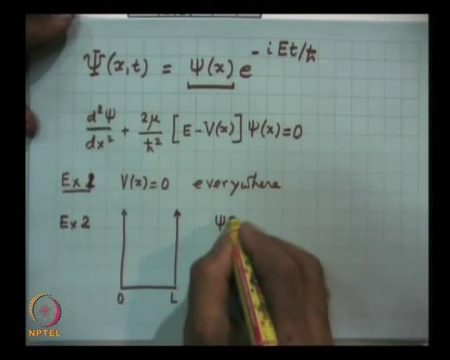 Ψ(x,t) = ψ(x) e^{-iEt/ħ}
d²ψ/dx² + 2μ/ħ² [E - V(x)] ψ(x) = 0
Ex 1 V(x)=0 everywhere
Ex 2 ψ
0 L
NPTEL